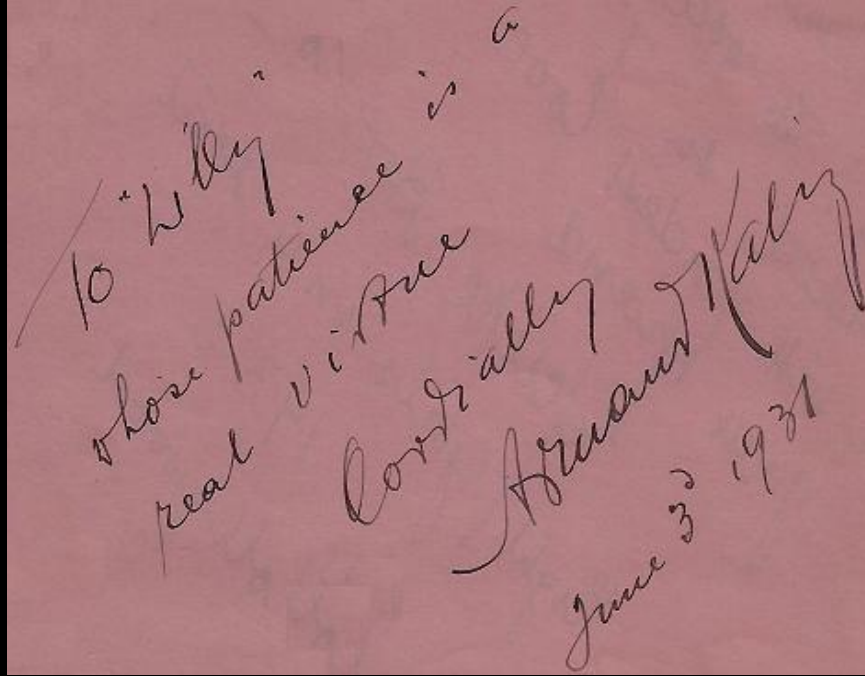 To "Willy"
whose patience is a
real virtue
Cordially
Armand Kaliz
June 3d 1931